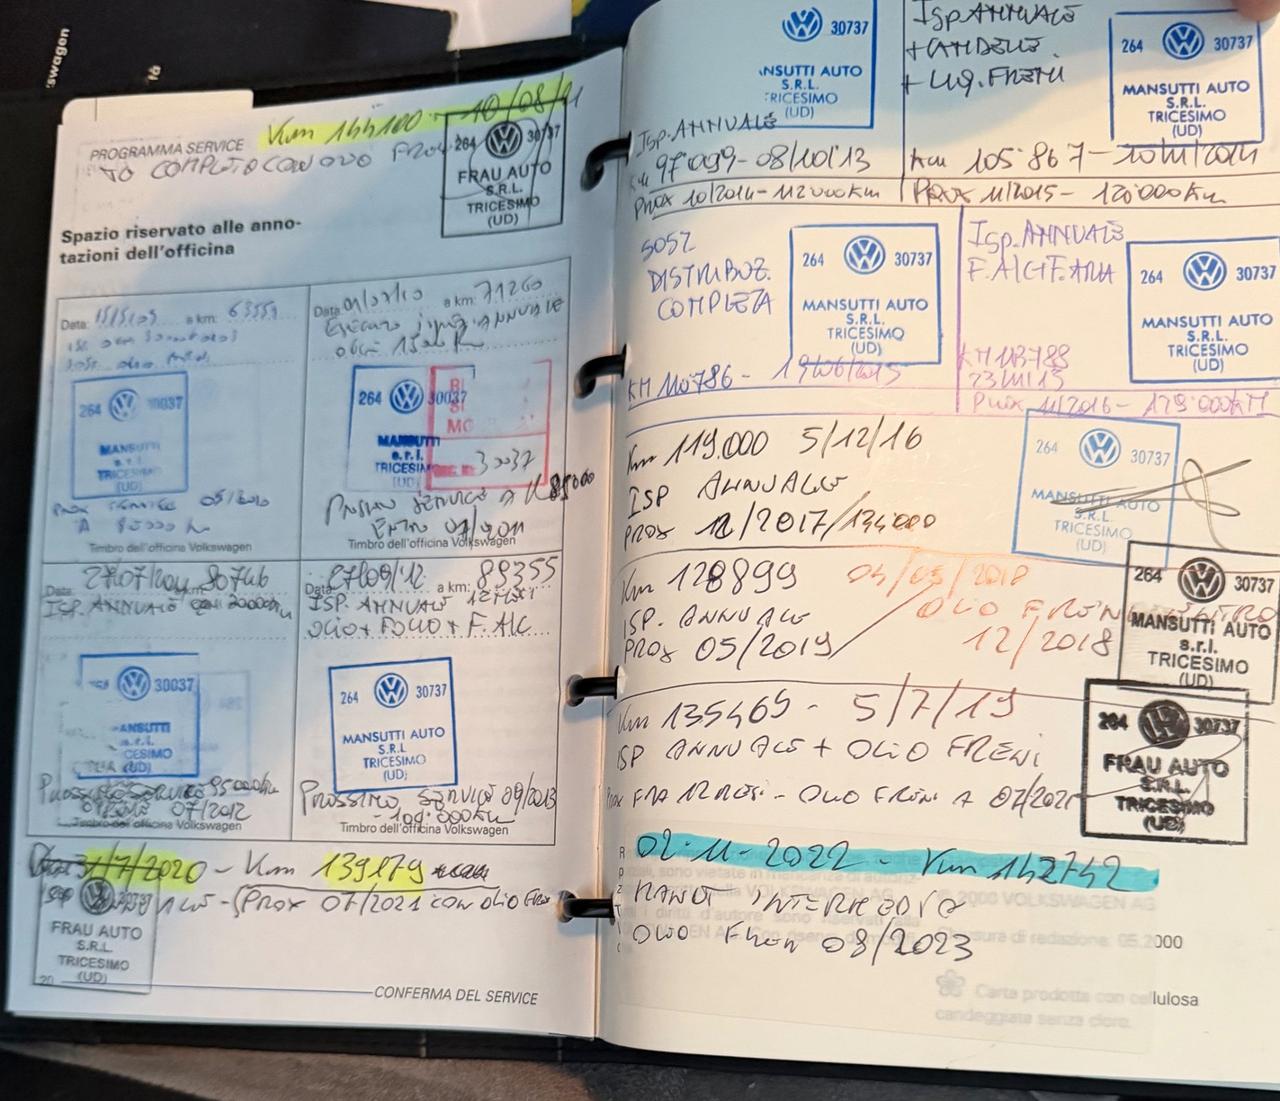 swagen
PROGRAMMA SERVICE
Km 144100 - 10/08/21
TO COMPLETO CON OLIO FRENI
264 30737
FRAU AUTO
S.R.L.
TRICESIMO
(UD)
Spazio riservato alle anno-
tazioni dell'officina
Data: 15/5/09 a km: 63551
264 30037
MANSUTTI
s.r.l.
TRICESIMO
(UD)
PROX SERVICE 05/2010
A 80000 K
Timbro dell'officina Volkswagen
Data: 01/07/10 a km: 71260
ANNUALE
264 30037
MANSUTTI
s.r.l.
TRICESIMO
30037
PROSSIMO SERVICE A K 85000
ENTRO 07/2011
Timbro dell'officina Volkswagen
Data: 27/07/2011 80746
ISP. ANNUALE OGNI 20000Km
30037
ANSUTTI
s.r.l.
CESIMO
(UD)
PROSSIMO SERVICE 95000Km
07/2012
Timbro dell'officina Volkswagen
Data: 27/09/'12 a km: 88355
ISP. ANNUALE 12 MESI
OLIO + FOLIO + F. ALC
264 30737
MANSUTTI AUTO
S.R.L
TRICESIMO
(UD)
PROSSIMO SERVICE 09/2013
- 109.000Km
Timbro dell'officina Volkswagen
31/7/2020 - Km 139179
(PROX 07/2021 CON OLIO FRENI
FRAU AUTO
S.R.L.
TRICESIMO
(UD)
20
CONFERMA DEL SERVICE
30737
NSUTTI AUTO
S.R.L.
TRICESIMO
(UD)
ISP. ANNUALE
Km 97'099 - 08/10/13
PROX 10/2014 - 112000Km
ISP ANNUALE
+ CANDELE
+ LIQ. FRENI
264 30737
MANSUTTI AUTO
S.R.L.
TRICESIMO
(UD)
Km 105'867 - 10/11/2014
PROX 11/2015 - 120'000Km
SOST
DISTRIBUZ.
COMPLETA
264 30737
MANSUTTI AUTO
S.R.L.
TRICESIMO
(UD)
KM 110'786 - 19/06/2015
ISP. ANNUALE
F. ALC + F. ARIA
264 30737
MANSUTTI AUTO
S.R.L.
TRICESIMO
(UD)
KM 113'788
23/11/15
PROX 11/2016 - 129'000KM
Km 119.000 5/12/16
ISP ANNUALE
PROX 12/2017/134000
264 30737
MANSUTTI AUTO
S.R.L.
TRICESIMO
(UD)
Km 128899 04/05/2018
ISP. ANNUALE OLIO FRENI
PROX 05/2019 12/2018
264 30737
MANSUTTI AUTO
s.r.l.
TRICESIMO
(UD)
Km 135469 - 5/7/19
ISP ANNUALE + OLIO FRENI
PROX FRA 12 MESI - OLIO FRENI A 07/2021
264 30737
FRAU AUTO
S.R.L.
TRICESIMO
(UD)
02-11-2022 - Km 142742
MANUT INTERMEDIA
OLIO FRENI 08/2023
© 2000 VOLKSWAGEN AG
Chiusura di redazione: 05.2000
Carta prodotta con cellulosa
candeggiata senza cloro.